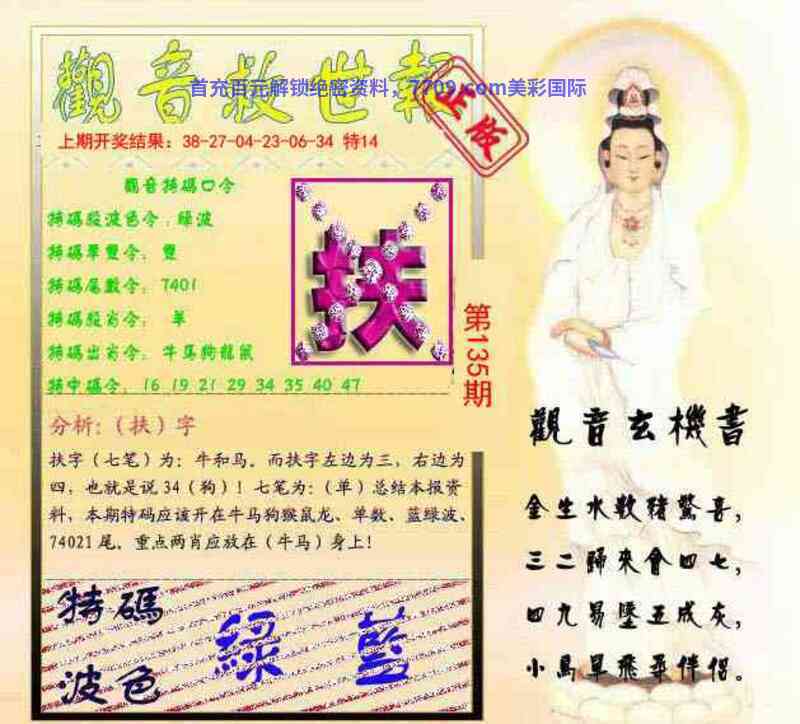 觀音救世報
首充百元解锁绝密资料，7709.com美彩国际
正版
上期开奖结果：38-27-04-23-06-34 特14
觀音特碼口令
特碼殺波色令：绿波
特碼單雙令：雙
特碼尾數令：7401
特碼殺肖令：羊
特碼出肖令：牛马狗龍鼠
特中碼令：16 19 21 29 34 35 40 47
扶
第135期
分析：（扶）字
扶字（七笔）为：牛和马。而扶字左边为三，右边为
四，也就是说34（狗）！七笔为：（单）总结本报资
料，本期特码应该开在牛马狗猴鼠龙、单数、蓝绿波、
74021尾，重点两肖应放在（牛马）身上！
特碼
波色
綠 藍
觀音玄機書
金生水数猪驚喜，
三二歸來會四七，
四九易墜五成灰，
小鳥單飛尋伴侣。